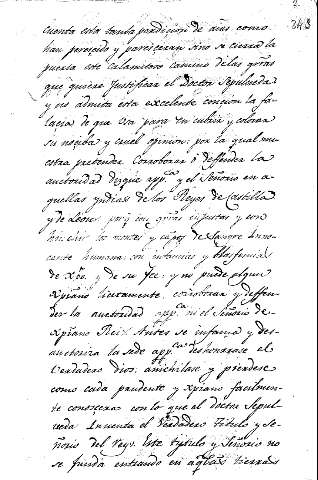 2
243
cuenta esta tanta perdicion de almas como
han perecido y pereceran sino se cierra la
puerta este calamitoso camino delas guerras
que quiere Justificar el Doctor Sepulveda
y no admita esta excelente congon la fa-
lacia de que usa para encubrir y colorar
su nociba y cruel opinion: por la qual mu-
estra pretender corroborar o deffender la
auctoridad dezque app.ca y el Señorio en a-
quellas yndias de los Reyes de Castilla
y de Leon por que guerras injustas y con
hinchir los montes y campos de sangre inno-
cente humana con infamias y blasfemias
de Xpo. y de su fee: y no puede algun
xpiano licitamente corroborar y deffen-
der la auctoridad app.ca ni el Señorio de
xpiano Rei: Antes se infama y des-
auctoriza la sede app.ca deshonrrase el
Verdadero dios, anichilase y pierdese
como cada prudente y xpiano facilmen-
te conoscera con lo que el doctor Sepul-
veda inventa el Verdadero titulo y Se-
ñorio del Rey. Este tytulo y Señorio no
se funda entrando en aq.llas tierras